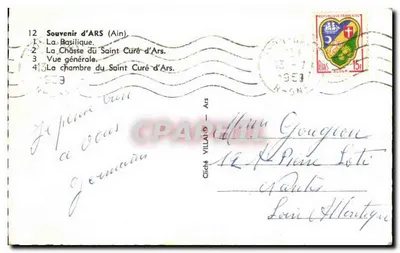 12 Souvenir d'ARS (Ain)
1 - La Basilique.
2 - La Châsse du Saint Curé d'Ars.
3 - Vue générale.
4 - La chambre du Saint Curé d'Ars.
1959
13-7
1959
15F
Je pense bien
à vous
Germaine
CPARAMA
Cliché VILLAND - Ars
Gougeon
12 Pierre Loti
Nantes
Loire Atlantique